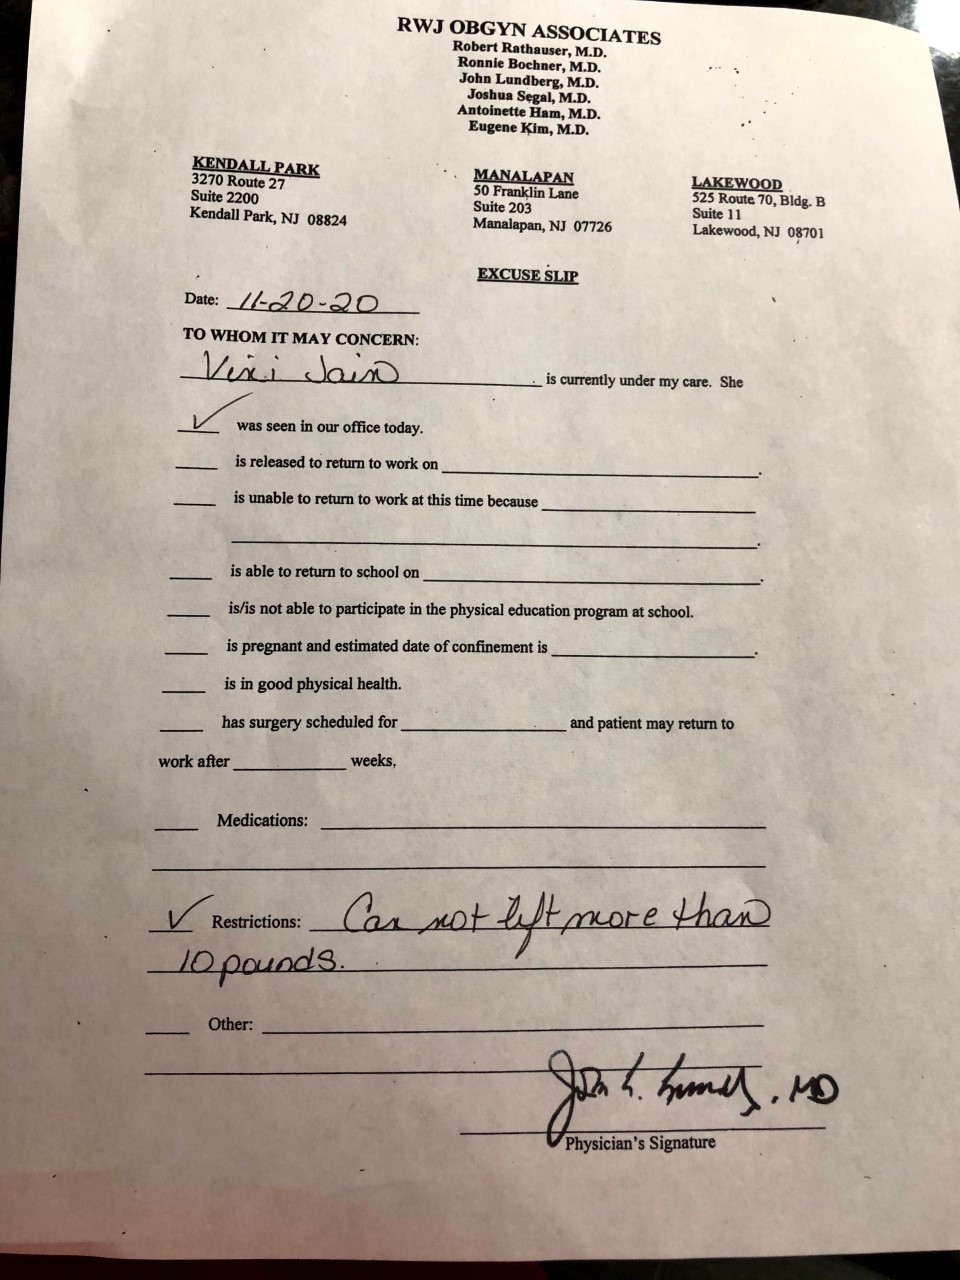 RWJ OBGYN ASSOCIATES
Robert Rathauser, M.D.
Ronnie Bochner, M.D.
John Lundberg, M.D.
Joshua Segal, M.D.
Antoinette Ham, M.D.
Eugene Kim, M.D.
KENDALL PARK
3270 Route 27
Suite 2200
Kendall Park, NJ 08824
MANALAPAN
50 Franklin Lane
Suite 203
Manalapan, NJ 07726
LAKEWOOD
525 Route 70, Bldg. B
Suite 11
Lakewood, NJ 08701
EXCUSE SLIP
Date: 11-20-20
TO WHOM IT MAY CONCERN:
Jain is currently under my care. She
was seen in our office today.
is released to return to work on
is unable to return to work at this time because
is able to return to school on
is/is not able to participate in the physical education program at school.
is pregnant and estimated date of confinement is
is in good physical health.
has surgery scheduled for and patient may return to
work after weeks,
Medications:
Restrictions: Can not lift more than
10 pounds.
Other:
John L. MD
Physician's Signature